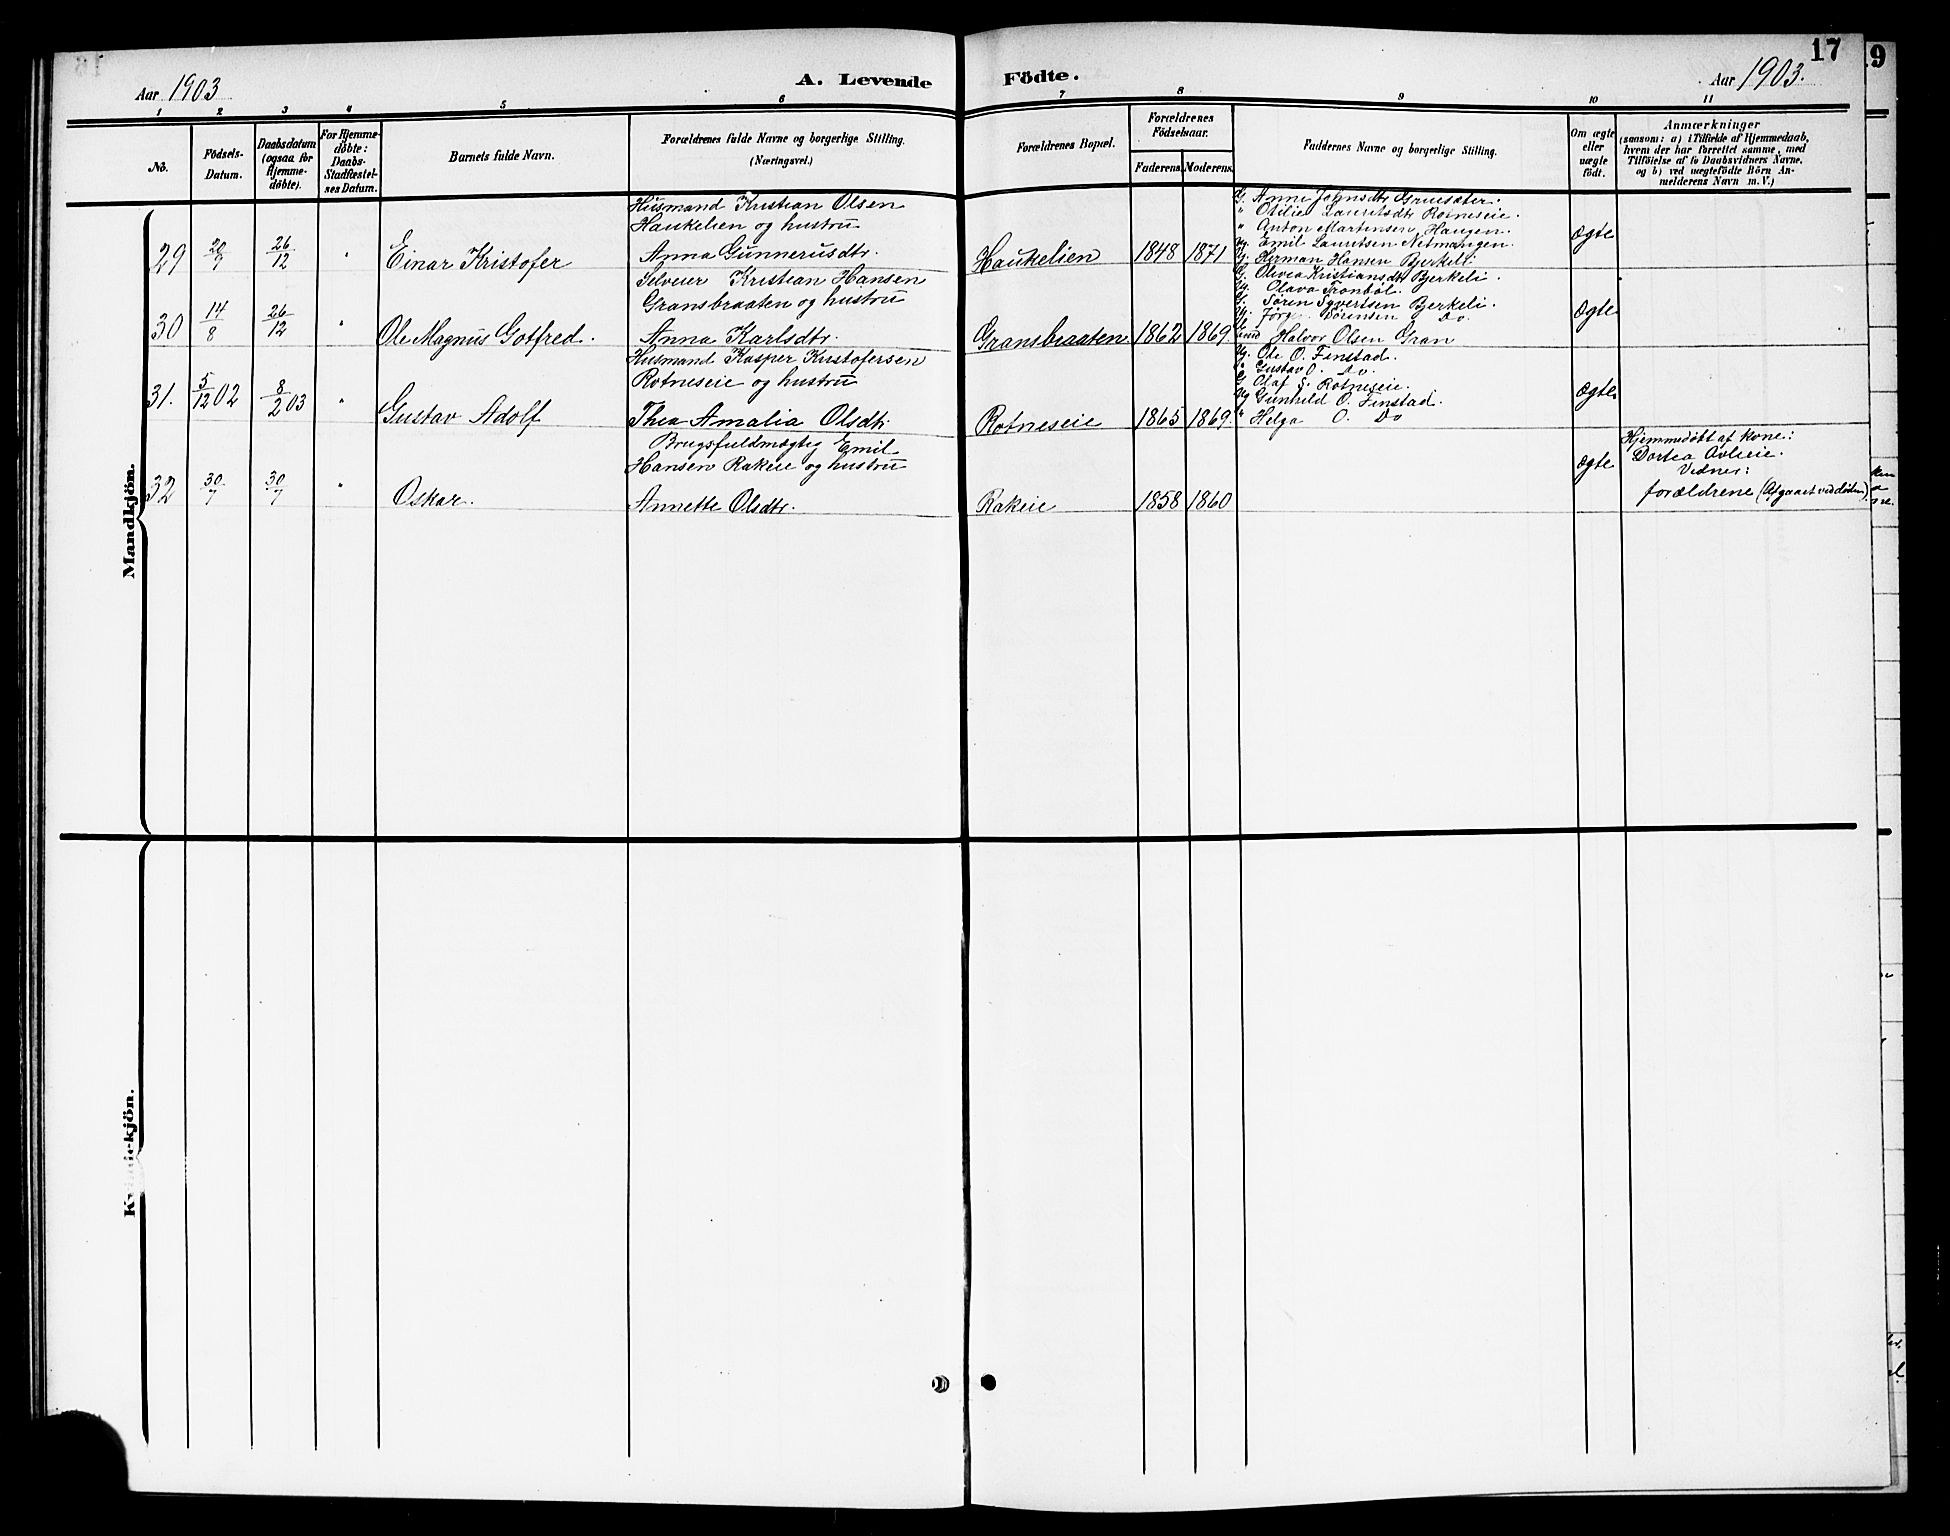 17
9
Aar 1903
A. Levende
Födte.
Aar 1903.
1 2 3 4 5 6 7 8 9 10 11
No.
Födsels-
Datum.
Daabsdatum
(ogsaa for
Hjemme-
döbte).
For Hjemme-
döbte:
Daabs-
Stadfæstel-
ses Datum.
Barnets fulde Navn.
Forældrenes fulde Navne og borgerlige Stilling.
(Næringsvei.)
Forældrenes Bopæl.
Forældrenes
Födselsaar.
Faderens. Moderens.
Faddernes Navne og borgerlige Stilling.
Om ægte
eller
uægte
födt.
Anmærkninger
(saasom: a) i Tilfælde af Hjemmedaab,
hvem der har forrettet samme, med
Tilföielse af to Daabsvidners Navne,
og b) ved uægtefödte Börn An-
melderens Navn m. V.)
Mandkjön.
29 20/9 26/12 " Einar Kristofer
Husmand Kristian Olsen
Haukelien og hustru
Anna Gunnerusdtr.
Haukelien 1848 1871
G. Anne Johnsdtr Gruesæter.
" Otilie Lauritsdtr Rotneseie.
" Anton Martensen Haugen.
Ug. Emil Lauritsen Netmangen.
Ug. Herman Hansen Bjerkeli
Ægte
30 14/8 26/12 " Ole Magnus Gotfred.
Selveier Kristian Hansen
Gransbraaten og hustru
Anna Karlsdtr.
Gransbraaten 1862 1869
G. Olivia Kristiansdtr Bjerkeli.
Ug. Olava Tronbøl.
G. Søren Syvertsen Bjerkeli.
Ug. Jørg Sørensen Do
Halvor Olsen Gran
Ægte
31. 5/12 02 8/2 03 " Gustav Adolf
Husmand Kasper Kristofersen
Rotneseie og hustru
Thea Amalia Olsdtr.
Rotneseie 1865 1869.
Ug. Ole O. Finstad.
" Gustav O. Do.
G Olaf S. Rotneseie.
Ug Gunhild O. Finstad.
" Helga O. Do
Ægte
32 30/7 30/7 " Oskar.
Brugsfuldmægtig Emil
Hansen Rakeie og hustru
Annette Olsdtr.
Rakeie 1858 1860
Ægte
Hjemmedøbt af kone:
Dortea Avleeie.
Vidner:
forældrene (Afgaaet ved døden).
Kvindekjön.